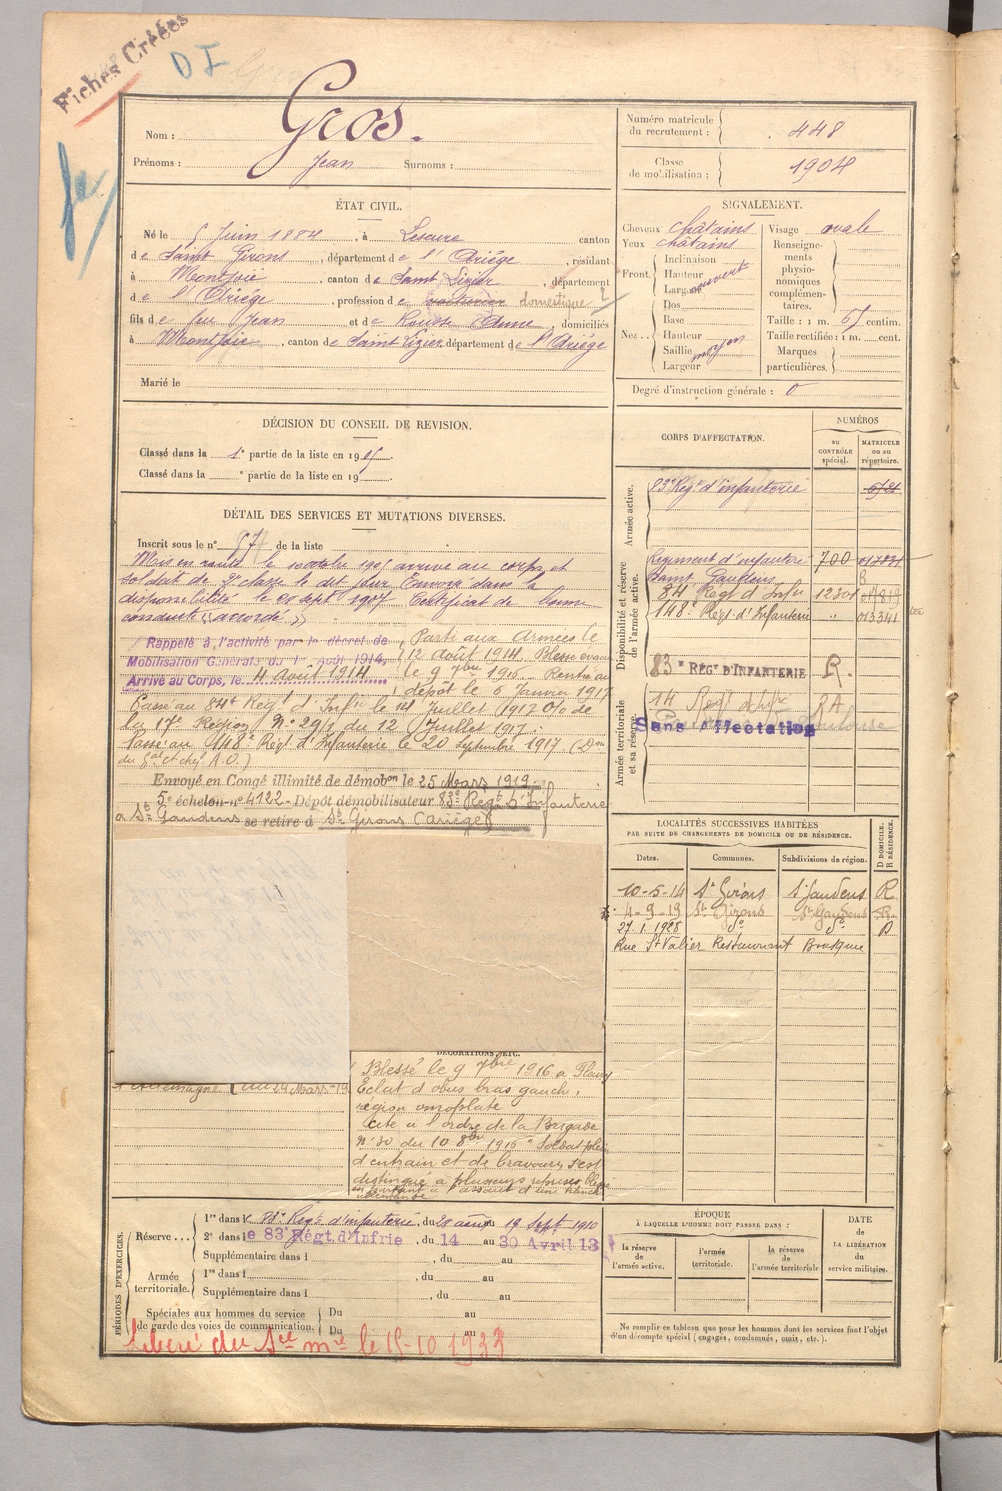 Fiches Créées
DI
Nom : Gros.
Prénoms : Jean Surnoms :
Numéro matricule du recrutement : 448
Classe de mobilisation : 1904
ÉTAT CIVIL.
Né le 5 Juin 1884, à Lescure canton
de Saint Girons, département de l'Ariège, résidant
à Montjoie, canton de Saint Lizier, département
de l'Ariège, profession de domestique
fils de feu Jean et de Rousse Anne, domiciliés
à Montjoie, canton de Saint Lizier département de l'Ariège
Marié le
SIGNALEMENT.
Cheveux châtains
Yeux châtains
Front. Inclinaison
Hauteur
Largeur
ouvert
Nez.. Dos
Base
Hauteur
Saillie
Largeur
moyen
Visage ovale
Renseignements physionomiques complémentaires.
Taille : 1 m. 57 centim.
Taille rectifiée : 1 m. cent.
Marques particulières.
Degré d'instruction générale : 0
DÉCISION DU CONSEIL DE REVISION.
Classé dans la 1e partie de la liste en 1905.
Classé dans la e partie de la liste en 19
DÉTAIL DES SERVICES ET MUTATIONS DIVERSES.
Inscrit sous le n° 57 de la liste
Mis en route le 10 octobre 1905 arrivé au corps et
soldat de 2e classe le dit jour. Envoyé dans la
disponibilité le 20 sept 1907. Certificat de bonne
conduite "accordé"
Rappelé à l'activité par le décret de
Mobilisation Générale du 1er Août 1914,
Arrivé au Corps, le 4 Août 1914
Parti aux Armées le
12 Août 1914. Blessé évacué
le 9 7bre 1916. Rentré au
dépôt le 6 Janvier 1917
Passé au 84e Regt d'Infie le 14 Juillet 1917 O/ de
la 17e Région N° 29/1 du 12 Juillet 1917.
Passé au 148e Régt d'Infanterie le 20 septembre 1917 (Don
du Gal ct chef A.O.)
Envoyé en Congé illimité de démobon le 25 Mars 1919
5e échelon n° 4122 - Dépôt démobilisateur 83e Régt d'Infanterie
à St Gaudens se retire à St Girons (Ariège)
CORPS D'AFFECTATION.
NUMÉROS
au CONTRÔLE spécial.
MATRICULE ou au répertoire.
Armée active.
83e Régt d'infanterie
Disponibilité et réserve de l'armée active.
Régiment d'infanterie 700
Saint Gaudens
84 Régt d'Infie
148e Régt d'Infanterie 013341
83e RÉGt D'INFANTERIE R.
Armée territoriale et sa réserve.
14 Regt d'Infie RA
Sans Affectation
LOCALITÉS SUCCESSIVES HABITÉES
PAR SUITE DE CHANGEMENTS DE DOMICILE OU DE RÉSIDENCE.
Dates. Communes. Subdivisions de région. D DOMICILE. R RÉSIDENCE.
10-5-14 St Girons St Gaudens R
4-9-19 St Girons St Gaudens R
27.1.1928 do do D
Rue St Valier Restaurant
d'Allemagne au 24 Mars-19
DÉCORATIONS, ETC.
Blessé le 9 7bre 1916 à Fleury
Eclat d'obus bras gauche,
région omoplate
Cité à l'ordre de la Brigade
N° 30 du 10 8bre 1916 "Soldat plein
d'entrain et de bravoure s'est
distingué à plusieurs reprises blessé
en partant à l'assaut d'une tranchée
allemande
PÉRIODES D'EXERCICES.
Réserve... 1re dans le Régt d'infanterie, du 28 août au 19 Sept 1910
2e dans le 83e Régt d'Infrie, du 14 au 30 Avril 13
Supplémentaire dans l , du au
Armée territoriale. 1re dans l , du au
Supplémentaire dans l , du au
Spéciales aux hommes du service de garde des voies de communication. Du au
Du au
Libéré du Sce mre le 15-10 1933
ÉPOQUE
À LAQUELLE L'HOMME DOIT PASSER DANS :
la réserve de l'armée active. l'armée territoriale. la réserve de l'armée territoriale
DATE DE LA LIBÉRATION du service militaire.
Ne remplir ce tableau que pour les hommes dont les services font l'objet
d'un décompte spécial (engagés, condamnés, omis, etc.).